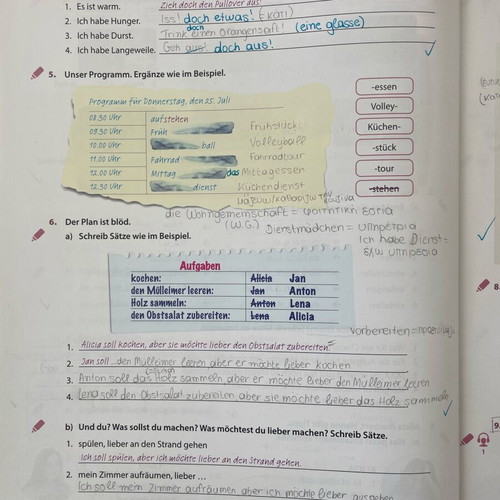 1. Es ist warm. Zieh doch den Pullover aus!
2. Ich habe Hunger. Iss doch etwas! (Kati)
3. Ich habe Durst. Trink doch einen Orangensaft! (eine glasse)
4. Ich habe Langeweile. Geh aus! doch aus!
5. Unser Programm. Ergänze wie im Beispiel.
Programm für Donnerstag, den 25. Juli
08.30 Uhr aufstehen
09.30 Uhr Früh Frühstück
10.00 Uhr ball Volleyball
11.00 Uhr Fahrrad Fahrradtour
12.00 Uhr Mittag das Mittagessen
12.30 Uhr dienst Küchendienst
-essen
Volley-
Küchen-
-stück
-tour
-stehen
die Wohngemeinschaft = φοιτητική εστία
(W.G.) Dienstmädchen = υπηρέτρια
Ich habe Dienst=
έχω υπηρεσία
6. Der Plan ist blöd.
a) Schreib Sätze wie im Beispiel.
Aufgaben
kochen: Alicia Jan
den Mülleimer leeren: Jan Anton
Holz sammeln: Anton Lena
den Obstsalat zubereiten: Lena Alicia
vorbereiten=
1. Alicia soll kochen, aber sie möchte lieber den Obstsalat zubereiten.
2. Jan soll den Mülleimer leeren aber er möchte lieber kochen
3. Anton soll das Holz sammeln aber er möchte lieber den Mülleimer leeren
4. Lena soll den Obstsalat zubereiten aber sie möchte lieber das Holz sammeln
b) Und du? Was sollst du machen? Was möchtest du lieber machen? Schreib Sätze.
1. spülen, lieber an den Strand gehen
Ich soll spülen, aber ich möchte lieber an den Strand gehen.
2. mein Zimmer aufräumen, lieber ...
Ich soll mein Zimmer aufräumen aber ich möchte lieber ausgehen
8.
9.
1